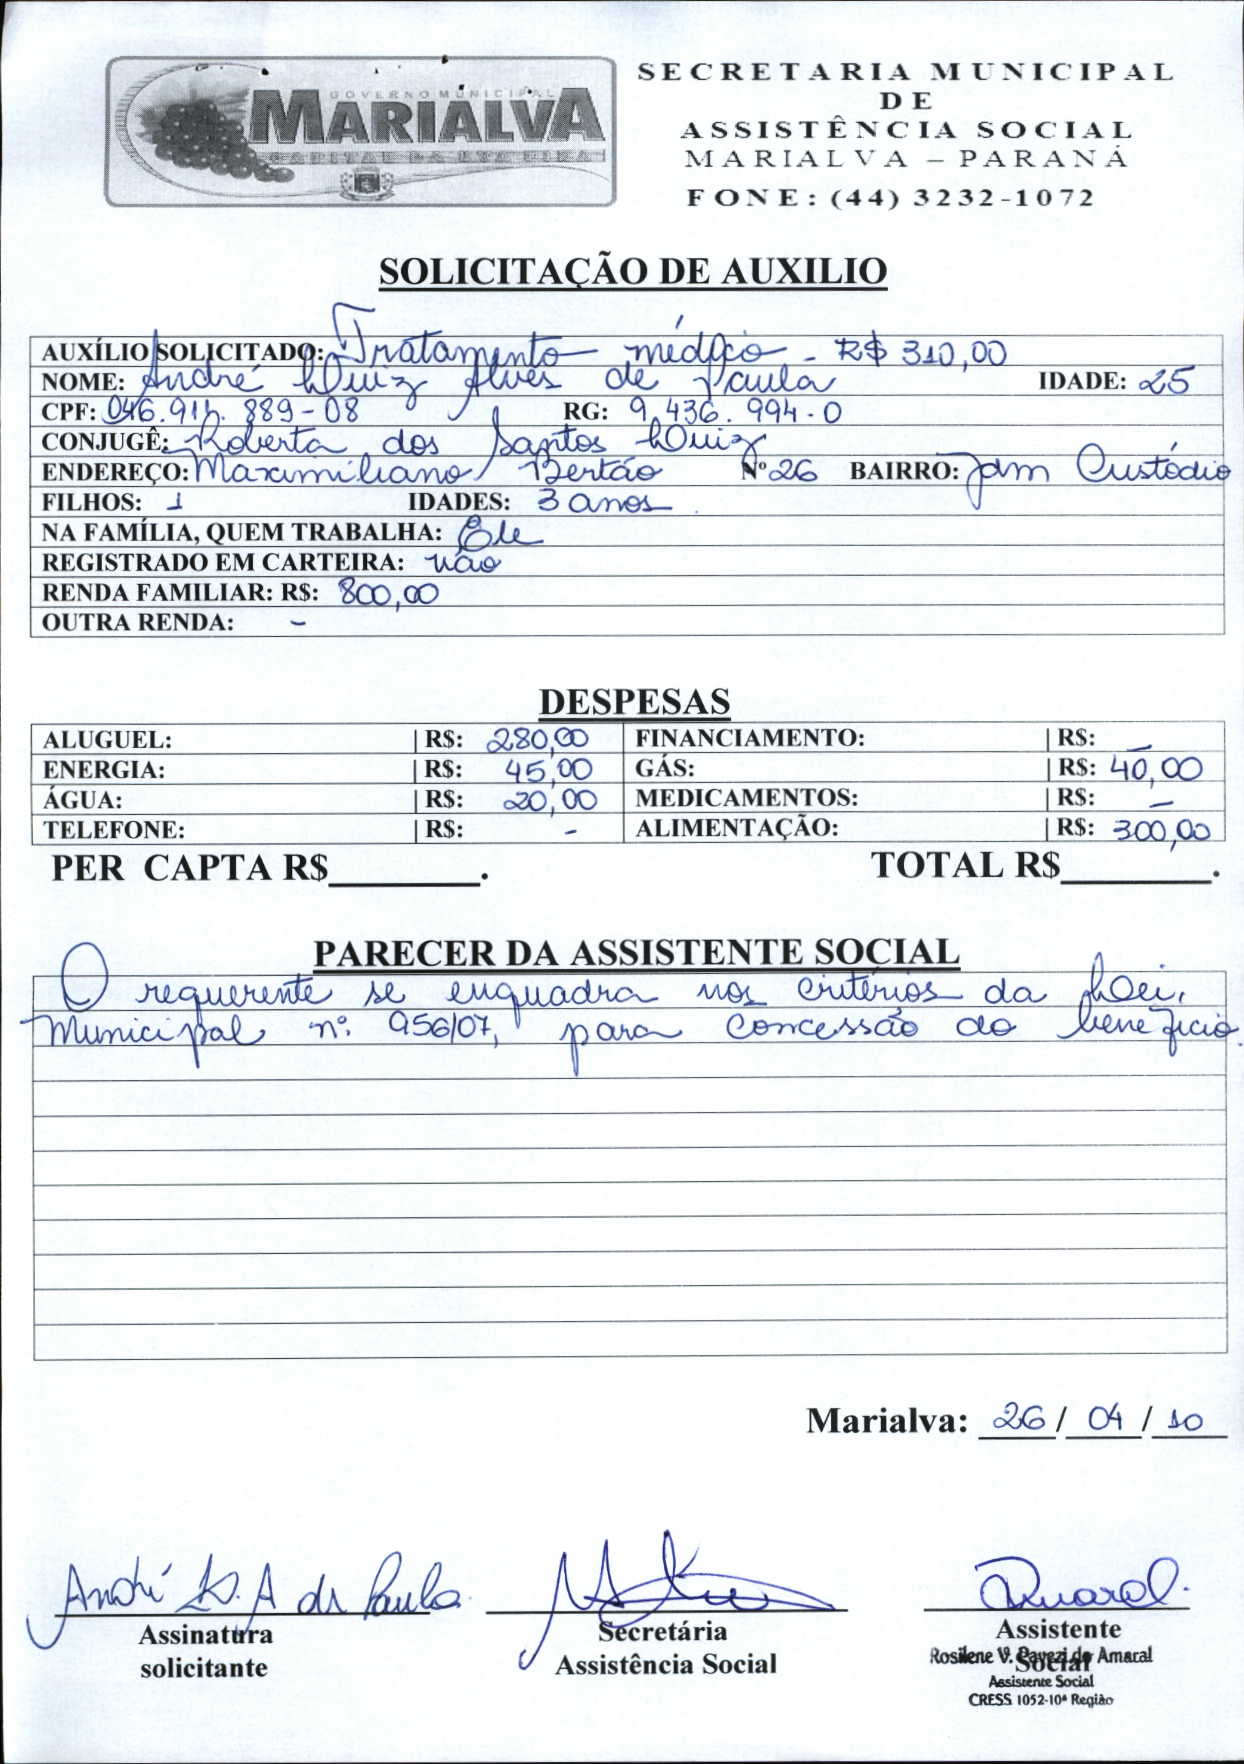 GOVERNO MUNICIPAL
MARIALVA
CAPITAL DA UVA FINA
SECRETARIA MUNICIPAL
DE
ASSISTÊNCIA SOCIAL
MARIALVA – PARANÁ
FONE: (44) 3232-1072
SOLICITAÇÃO DE AUXILIO
AUXÍLIO SOLICITADO: Tratamento médico - R$ 310,00
NOME: André Luiz Alves de Paula IDADE: 25
CPF: 046.914.889-08 RG: 9.436.994-0
CONJUGÊ: Roberta dos Santos Luiz
ENDEREÇO: Maximiliano Bertão Nº 26 BAIRRO: Jdm Custódio
FILHOS: 1 IDADES: 3 anos
NA FAMÍLIA, QUEM TRABALHA: Ele
REGISTRADO EM CARTEIRA: não
RENDA FAMILIAR: R$: 800,00
OUTRA RENDA: -
DESPESAS
ALUGUEL: | R$: 280,00 FINANCIAMENTO: | R$: -
ENERGIA: | R$: 45,00 GÁS: | R$: 40,00
ÁGUA: | R$: 20,00 MEDICAMENTOS: | R$: -
TELEFONE: | R$: - ALIMENTAÇÃO: | R$: 300,00
PER CAPTA R$________. TOTAL R$________.
PARECER DA ASSISTENTE SOCIAL
O requerente se enquadra nos critérios da Lei,
Municipal nº. 956/07, para concessão do benefício.
Marialva: 26/ 04 / 10
André L. A de Paula Amaral
Assinatura Secretária Assistente
solicitante Assistência Social Social
Rosilene V. Pavezi do Amaral
Assistente Social
CRESS 1052-10ª Região